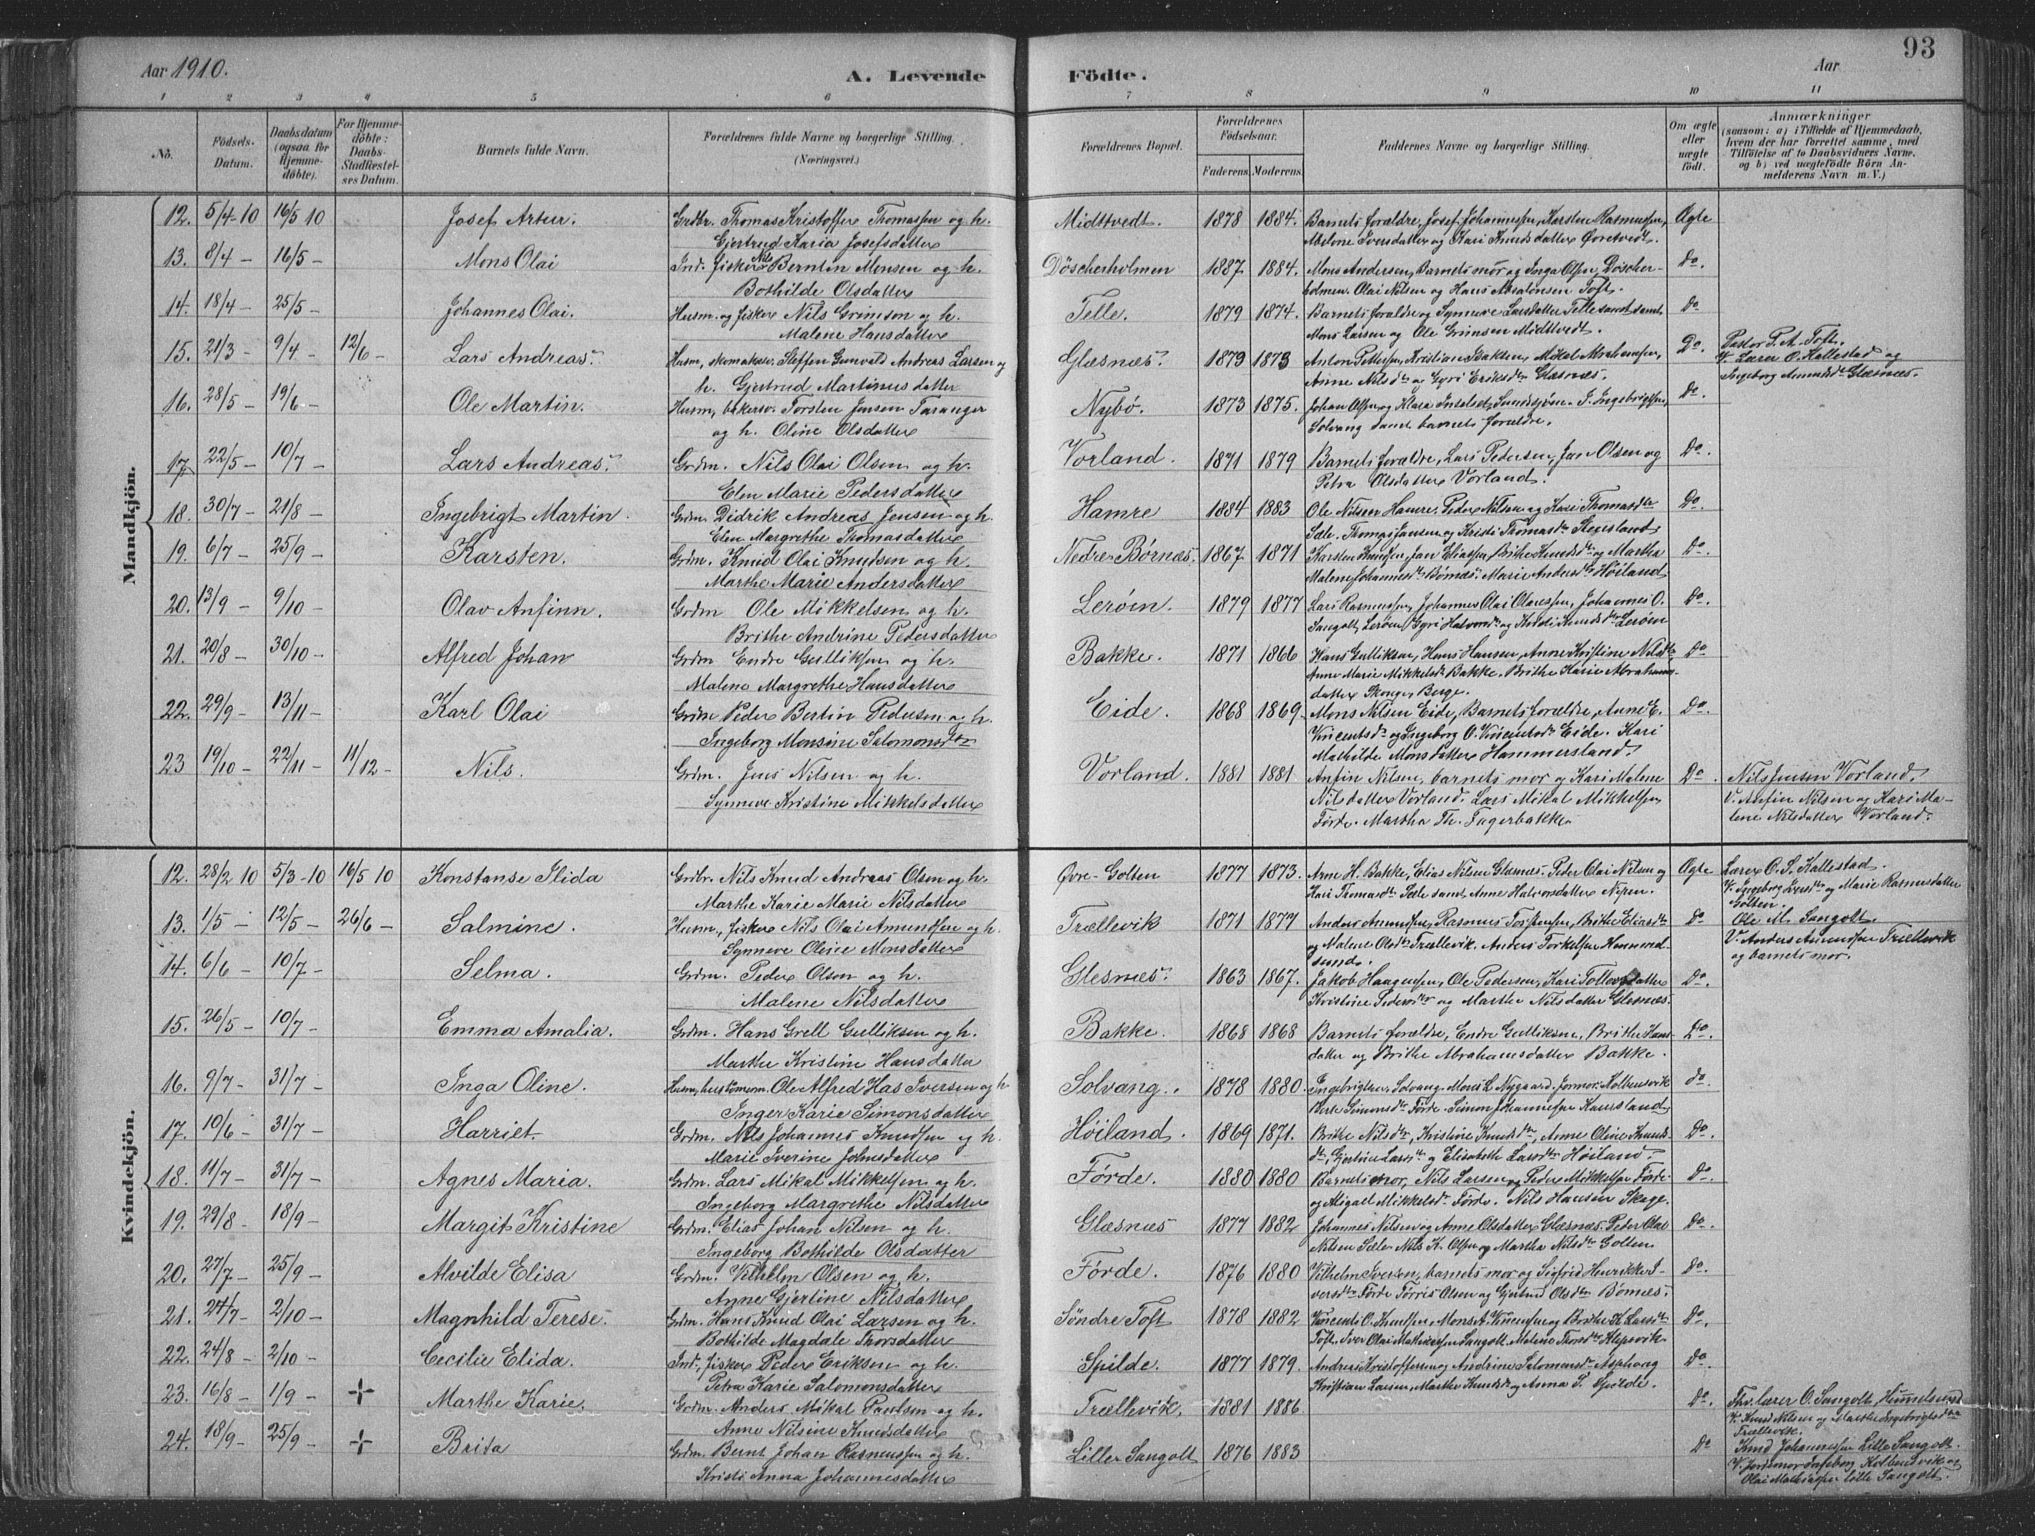 Aar 1910.
A. Levende
Födte.
Aar
93
1 2 3 4 5 6 7 8 9 10 11
No.
Födsels-Datum.
Daabsdatum (ogsaa for Hjemmedöbte).
For Hjemmedöbte: Daabs-Stadfæstelses Datum.
Barnets fulde Navn.
Forældrenes fulde Navne og borgerlige Stilling. (Næringsvei.)
Forældrenes Bopæl.
Forældrenes Födselsaar.
Faderens. Moderens.
Faddernes Navne og borgerlige Stilling.
Om ægte eller uægte födt.
Anmærkninger (saasom: a) i Tilfælde af Hjemmedaab, hvem der har forrettet samme, med Tilföielse af to Daabsvidners Navne, og b) ved uægtefödte Börn Anmelderens Navn m. V.)
Mandkjön.
12. 5/4-10 16/5 10 Josef Artur. Grdbr. Thomas Kristoffer Thomassen og h. Midttvedt. 1878 1884. Barnets forældre, Josef Johannessen, Karsten Rasmussen, Ægte
Gjertrud Karia Josefsdatter Abelone Iversdatter og Kari Knudsdatter Øvretvedt.
13. 8/4 - 16/5 - Mons Olai Ind. fisker Nils Berntin Monsen og h. Döscherholmen 1887. 1884. Mons Andersen, Barnets mor og Inga Olsen, Döscher- Do.
Bothilde Olsdatter holmen Olai Nilsen og Hans Absalonsen Toft.
14. 18/4 - 25/5 - Johannes Olai. Husm. og fisker Nils Grimson og h. Telle. 1879 1874. Barnets forældre og Synneve Larsdatter Telle samt Do
Malene Hansdatter Mons Larsen og Ole Grimsen Midttvedt.
15. 21/3 - 9/4 - 12/6 - Lars Andreas. Husm, skomaker Steffen Gunvald Andreas Larsen og Glæsnes. 1879 1873 Anton Pettersen, Kristian Isaksen, Mikal Abrahamsen, Do. Pastor P. A. Toft.
h. Gjertrud Martinusdatter Anne Nilsdtr og Gyri Eriksdtr Glæsnes. V. Lærer O. Kallestad og
Ingeborg Amundsdtr Glæsnes.
16. 28/5 - 19/6 - Ole Martin. Husm, bakersv. Torsten Jensen Taranger Nybö. 1873 1875. Johan Olsen og Klara Do.
og h. Oline Olsdatter Solvang samt barnets forældre.
17. 22/5 - 10/7 - Lars Andreas. Grdm. Nils Olai Olsen og h. Vorland. 1871 1879 Barnets forældre, Lars Pedersen, Jan Olsen og Do.
Elen Marie Pedersdatter Petra Olsdatter Vorland.
18. 30/7 - 21/8 - Ingebrigt Martin. Grdm. Didrik Andreas Jensen og h. Hamre 1884 1883 Ole Nilsen Hamre. Peder Nilsen og Kari Thomasdtr Do.
Elen Margrethe Thomasdatter Sæle. Thomas Jansen og Kristi Thomasdtr Stegsland
19. 6/7 - 25/9 - Karsten. Grdm. Knud Olai Knudsen og h. Nedre Børnæs. 1867. 1871 Karsten Knudsen, Jan Eliassen, Brithe Knudsdtr og Martha Do.
Marthe Marie Andersdatter Malene Johannesdtr Börnæs. Marie Andersdtr Höiland
20. 13/9 - 9/10 - Olav Anfinn. Grdm Ole Mikkelsen og h. Leröin. 1879 1877 Lars Rasmussen, Johannes Olai Olaussen, Johannes O. Do.
Brithe Andrine Pedersdatter Sangolt, Leröen
21. 20/8 - 30/10 - Alfred Johan Grdm Endre Gulliksen og h. Bakke. 1871 1866 Hans Gulliksen, Hans Hansen, Anne Kristine Nilsdtr, Do
Malene Margrethe Hansdatter Anne Marie Mikkelsdtr Bakke. Brithe Karie Abrahams-
datter Skoge, Berge.
22. 29/9 - 13/11 - Karl Olai Grdm Peder Bertin Pedersen og h. Eide. 1868 1869. Mons Nilsen Eide, Barnets forældre, Anne E. Do.
Ingeborg Monsine Salomonsdtr Vincentsdtr og Ingeborg O. Vincentsdtr Eide. Kari
Mathilde Monsdatter Hammersland.
23 19/10 - 22/11 - 11/12 - Nils. Grdm. Jens Nilsen og h. Vorland. 1881 1881. Anfin Nilsen, barnets mor og Kari Malene Do. Nils Jensen Vorland.
Synneve Kristine Mikkelsdatter Nilsdatter Vorland. Lars Mikal Mikkelsen, V. Anfin Nilsen og Kari Ma-
Förde. Martha Th. Fagerbakke lene Nilsdatter Vorland.
Kvindekjön.
12. 28/2 10 5/3-10 16/5 10 Konstanse Ilida Grdbr. Nils Knud Andreas Olsen og h. Øvre-Golten 1877 1873. Arne H. Bakke, Elias Nilsen Glesnæs. Peder Olai Nilsen og Ægte Lærer O. S. Kallestad.
Marthe Karie Marie Nilsdatter Kari Tomasdtr Sæle samt Anne Halvorsdatter Nipen. V. Ingeborg Larsdtr og Marie Rasmusdatter
Golten.
13. 1/5 - 12/5 - 26/6 - Salmine. Husm, fisker Nils Olai Amundsen og h. Trællevik 1871 1877 Anders Amundsen, Rasmus Torstensen, Brithe Eliasdtr do Ole M. Sangolt.
Synneve Oline Monsdatter og Malene Olsdtr Trællevik. Anders Torkelsen Hummel- V. Anders Amundsen Trællevik
sund. og barnets mor.
14. 6/6 - 10/7 - Selma. Grdm. Peder Olson og h. Glesnæs. 1863 1867. Jakob Haagensen, Ole Pedersen, Kari Tollevsdatter Do.
Malene Nilsdatter Kristine Pedersdtr og Marthe Nilsdatter Glesnæs.
15. 26/5 - 10/7 - Emma Amalia. Grdm. Hans Grell Gulliksen og h. Bakke. 1868 1868 Barnets forældre, Endre Gulliksen, Brithe Hans- Do.
Marthe Kristine Hansdatter datter og Brithe Abrahamsdatter Bakke.
16. 9/7 - 31/7 - Inga Oline. Husm, hustömrm. Ole Alfred Has Iversen og h Solvang. 1878 1880. Ingebrigtsen, Solvang. Mons L Nygaard, Kolbensvik do.
Inger Karie Simonsdatter Berte Simonsdtr Förde. Simon Johannesen Hamsland
17. 10/6 - 31/7 - Harriet. Grdm. Nils Johannes Knudsen og h. Höiland. 1869 1871. Brithe Nilsdtr, Kristine Knudsdtr, Anne Oline Knuds- Do.
Marie Iverine Johnsdatter dtr, Gjertine Larsdtr og Elisabeth Larsdtr Höiland.
18. 11/7 - 31/7 - Agnes Maria. Grdm. Lars Mikal Mikkelsen og h. Förde. 1880 1880 Barnets mor, Nils Larsen og Peder Mikkelsen Förde Do.
Ingeborg Margrethe Nilsdatter og Abigail Mikkelsdtr Förde. Nils Hansen Skoge.
19. 29/8 - 18/9 - Margit Kristine Grdm. Elias Johan Nilsen og h. Glæsnæs 1877 1882 Johannes Nilsen og Anne Olsdatter Glæsnæs. Peder Olai Do.
Ingeborg Bothilde Olsdatter Nilsen Sæle. Nils K. Olsen og Martha Nilsdtr Golten
20. 27/7 - 25/9 - Alvilde Elisa Grdm. Vilhelm Olsen og h. Förde. 1876 1880 Vilhelm Iversen, barnets mor og Sigfrid Henrikke I- Do.
Anne Gjertine Nilsdatter versdtr Förde Torris Olsen og Gjertrud Olsdtr Börnes.
21. 24/7 - 2/10 - Magnhild Terese. Grdm. Hans Knud Olai Larsen og h. Söndre Toft 1878 1882 Vincents O. Knudsen, Mons A. Vincentsen og Brithe K. Larsdtr Do.
Bothilde Magdale Thorsdatter Toft. Iver Olai Mathiassen Sangolt. Malene Klepsvik
22. 24/8 - 2/10 - Cecilie Elida. Ind., fisker Peder Eriksen og h. Spilde. 1877 1879. Andreas Kristoffersen og Andrine Salomonsdtr Do
Petra Karie Salomonsdatter Kristian Larsen, Marthe Knudsdtr og Anna S. Spilde.
23. 16/8 - 1/9 - + Marthe Karie. Grdm. Anders Mikal Paulsen og h. Trællevik. 1881 1886. Do. Fhv. lærer O. Sangolt Hummelsund
Anne Nilsine Knudsdatter V. Knud Nilsen og Marthe Ingebrigtsdtr
Trællevik.
24. 18/9 - 25/9 - + Brita Grdm. Bernt Johan Rasmussen og h. Lille Sangolt 1876 1883 Do Knud Johannessen Lille Sangolt.
Kristi Anna Johannesdatter V. Jordmor Ingeborg Kolbensvik og
Olai Mathiassen Lille Sangolt.